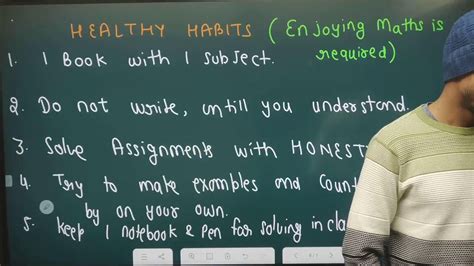 HEALTHY HABITS (Enjoying Maths is
required)
1. 1 Book with 1 subject.
2. Do not write, untill you understand.
3. Solve Assignments with HONEST
4. Try to make examples and Count
by on your own.
5. Keep 1 notebook & pen for solving in cla